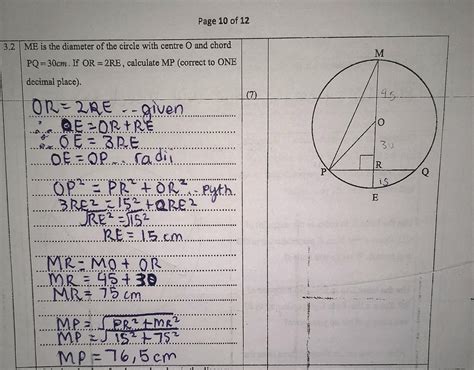 Page 10 of 12
3.2 ME is the diameter of the circle with centre O and chord
PQ = 30cm. If OR = 2RE, calculate MP (correct to ONE
decimal place).
(7)
OR = 2RE .. given
∴ OE = OR + RE
∴ OE = 3RE
OE = OP .. radii
OP² = PR² + OR² .. Pyth
3RE² = 15² + 2RE²
√RE² = √15²
RE = 15 cm
MR = MO + OR
MR = 45 + 30
MR = 75 cm
MP = √PR² + MR²
MP = √15² + 75²
MP = 76,5 cm
M
45
O
30
P
R
Q
15
E